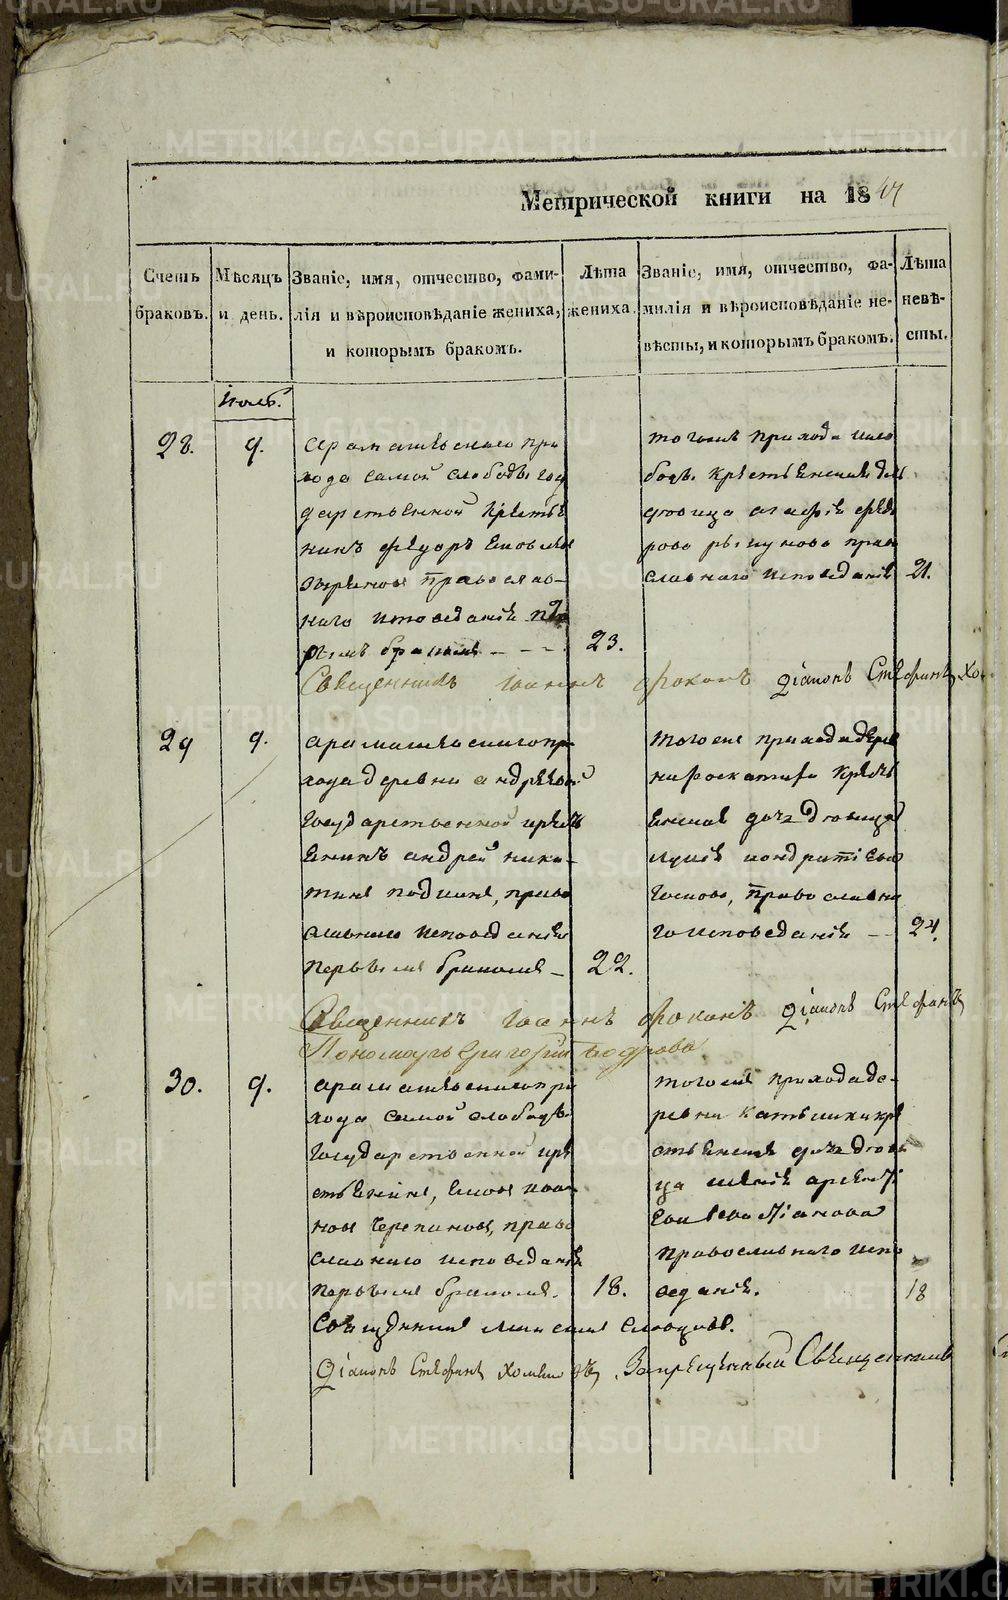 Метрической книги на 1847
Счетъ браковъ.
Мѣсяцъ и день.
Званіе, имя, отчество, фами-
лія и вѣроисповѣданіе жениха,
и которымъ бракомъ.
Лѣта жениха.
Званіе, имя, отчество, фа-
милія и вѣроисповѣданіе не-
вѣсты, и которымъ бракомъ.
Лѣта невѣ-
сты.
Нояб.
28.
9.
хода самой слободы госу
дарственной крестья
нинъ Федоръ
православ-
наго исповеданія
рымъ бракомъ
23.
тогоже прихода
крестьянская
девица Агафія Федо
рова
славнаго исповеданія
21.
Священникъ Іоаннъ Фокинъ Діаконъ Стефанъ Хо
29
9.
арамашевскаго при
хода деревни андреевой
государственной крестья
енинъ андрей ники-
тинъ подкинъ, право
славнаго исповеданія
первымъ бракомъ
22.
тогоже прихода дерев
ни роскатихи крестья
енская дочь девица
кондратіева
православна
го исповеданія
24.
Священникъ Іоаннъ Фокинъ Діаконъ Стефанъ
Пономарь Григорій
30.
9.
арамашевскаго при
хода самой слободы
государственной кре
стьенинъ, Іаковъ ива
новъ Черепановъ, право
славнаго исповеданія
первымъ бракомъ.
18.
тогоже прихода де-
ревни катышки кре
стьенская дочь деви
ца
православнаго испо
веданія.
18
Священникъ Максимъ Словцовъ.
Діаконъ Стефанъ Запрещенный Священникъ
METRIKI.GASO-URAL.RU